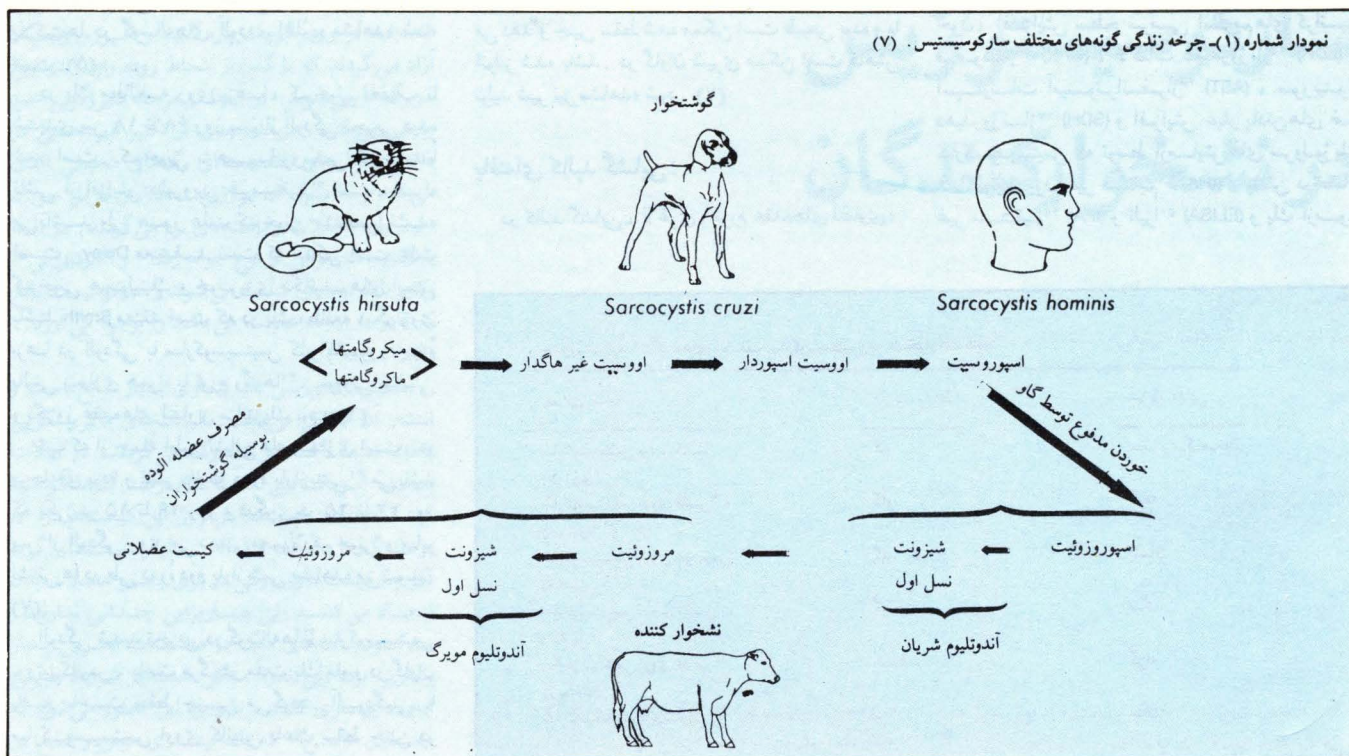 نمودار شماره (۱)ـ چرخه زندگی گونه‌های مختلف سارکوسیستیس . (۷)
گوشتخوار
Sarcocystis hirsuta
Sarcocystis cruzi
Sarcocystis hominis
میکروگامتها
ماکروگامتها
اووسیت غیر هاگدار
اووسیت اسپوردار
اسپوروسیت
خوردن مدفوع توسط گاو
مصرف عضله آلوده
بوسیله گوشتخواران
اسپوروزوئیت
شیزونت
مروزوئیت
شیزونت
مروزوئیت
کیست عضلانی
نسل اول
نسل اول
آندوتلیوم شریان
آندوتلیوم مویرگ
نشخوار کننده